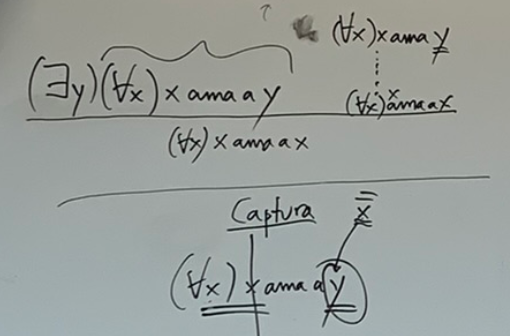 (∀x) x ama y
(∃y)(∀x) x ama a y
(∀x) x ama a x
(∀x) x ama a x
Captura x
(∀x) x ama a y